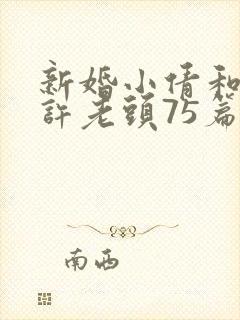 新婚小倩和
許老頭75篇
南西